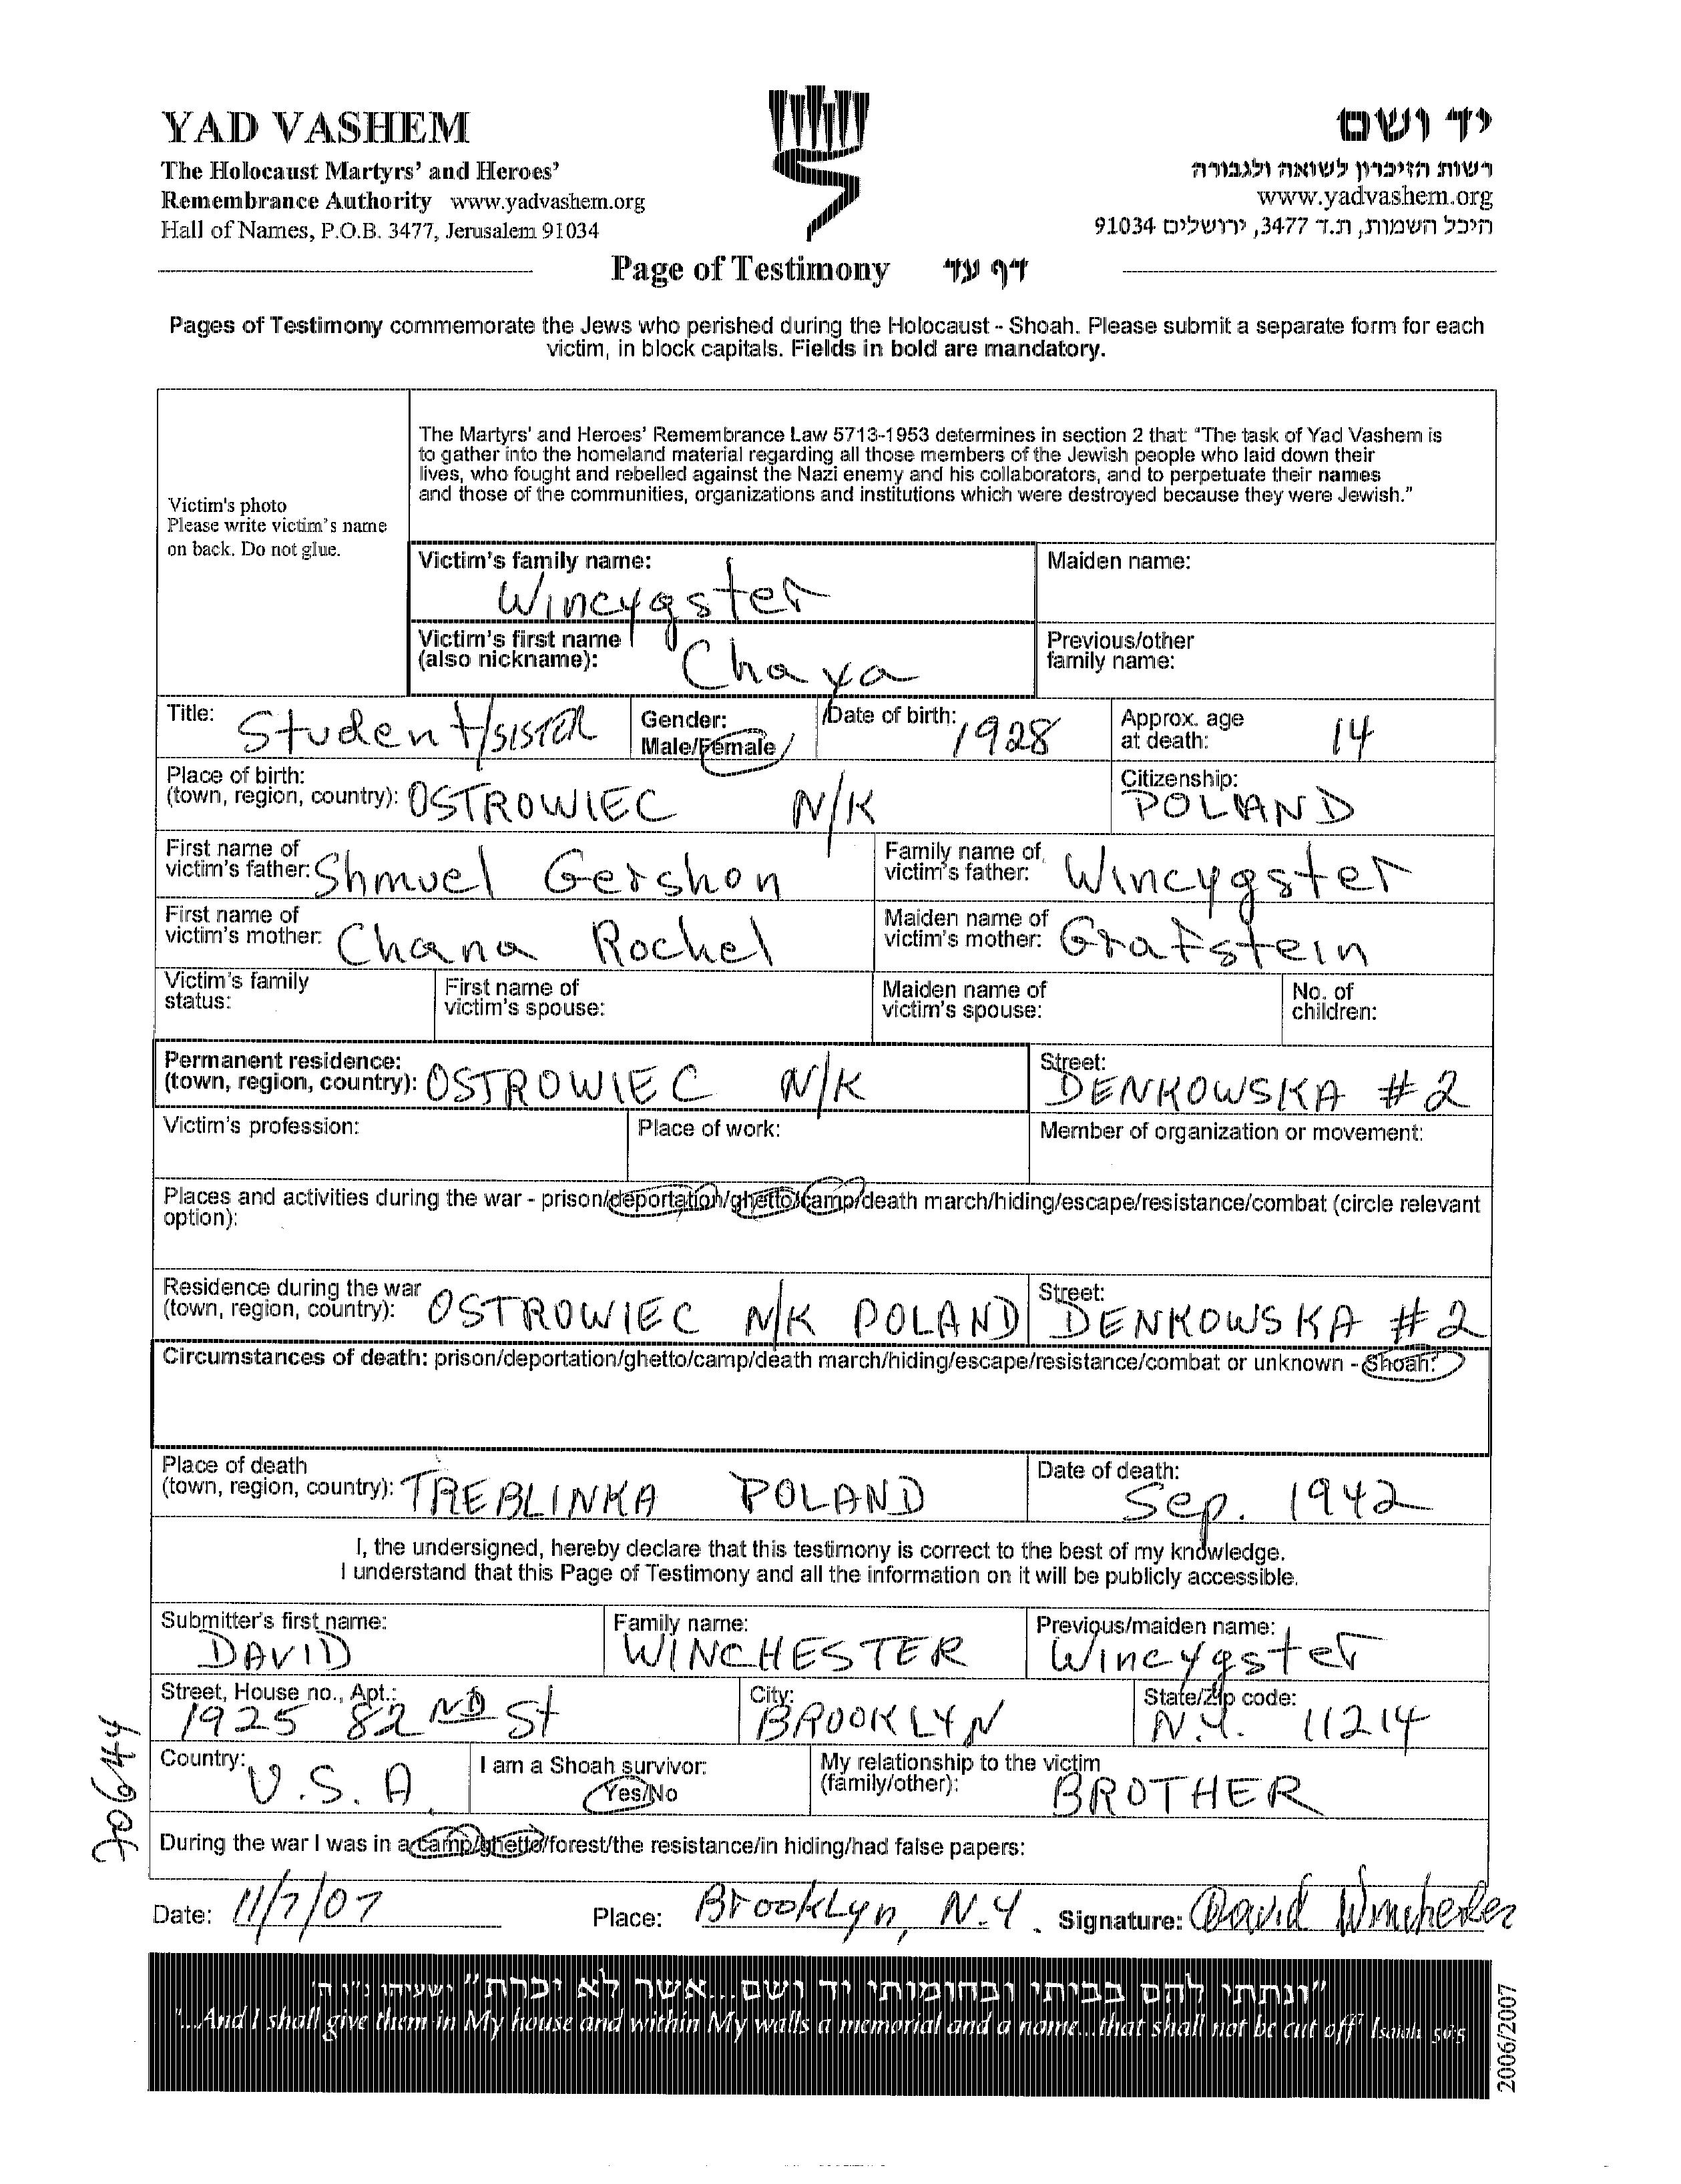 YAD VASHEM
The Holocaust Martyrs' and Heroes'
Remembrance Authority www.yadvashem.org
Hall of Names, P.O.B. 3477, Jerusalem 91034
יד ושם
רשות הזיכרון לשואה ולגבורה
www.yadvashem.org
היכל השמות, ת.ד 3477, ירושלים 91034
Page of Testimony דף עד
Pages of Testimony commemorate the Jews who perished during the Holocaust - Shoah. Please submit a separate form for each
victim, in block capitals. Fields in bold are mandatory.
Victim's photo
Please write victim's name
on back. Do not glue.
The Martyrs' and Heroes' Remembrance Law 5713-1953 determines in section 2 that: "The task of Yad Vashem is
to gather into the homeland material regarding all those members of the Jewish people who laid down their
lives, who fought and rebelled against the Nazi enemy and his collaborators, and to perpetuate their names
and those of the communities, organizations and institutions which were destroyed because they were Jewish."
Victim's family name:
Wincygster
Maiden name:
Victim's first name
(also nickname):
Chaya
Previous/other
family name:
Title: Student/SISTER
Gender:
Male/Female
Date of birth: 1928
Approx. age
at death: 14
Place of birth:
(town, region, country): OSTROWIEC N/K
Citizenship:
POLAND
First name of
victim's father: Shmuel Gershon
Family name of
victim's father: Wincygster
First name of
victim's mother: Chana Rochel
Maiden name of
victim's mother: Grafstein
Victim's family
status:
First name of
victim's spouse:
Maiden name of
victim's spouse:
No. of
children:
Permanent residence:
(town, region, country): OSTROWIEC N/K
Street:
DENKOWSKA #2
Victim's profession:
Place of work:
Member of organization or movement:
Places and activities during the war - prison/deportation/ghetto/camp/death march/hiding/escape/resistance/combat (circle relevant
option):
Residence during the war
(town, region, country): OSTROWIEC N/K POLAND
Street:
DENKOWSKA #2
Circumstances of death: prison/deportation/ghetto/camp/death march/hiding/escape/resistance/combat or unknown - Shoah:
Place of death
(town, region, country): TREBLINKA POLAND
Date of death:
Sep. 1942
I, the undersigned, hereby declare that this testimony is correct to the best of my knowledge.
I understand that this Page of Testimony and all the information on it will be publicly accessible.
Submitter's first name:
DAVID
Family name:
WINCHESTER
Previous/maiden name:
Wincygster
Street, House no., Apt.:
1925 82ND St
City:
BROOKLYN
State/Zip code:
N.Y. 11214
Country: U.S.A.
I am a Shoah survivor:
Yes/No
My relationship to the victim
(family/other): BROTHER
During the war I was in a camp/ghetto/forest/the resistance/in hiding/had false papers:
70644
Date: 11/7/07
Place: Brooklyn, N.Y.
Signature: David Winchester
"ונתתי להם בביתי ובחומותי יד ושם...אשר לא יכרת" ישעיהו נ"ו ה'
"...And I shall give them in My house and within My walls a memorial and a name...that shall not be cut off" Isaiah 56:5
2006/2007